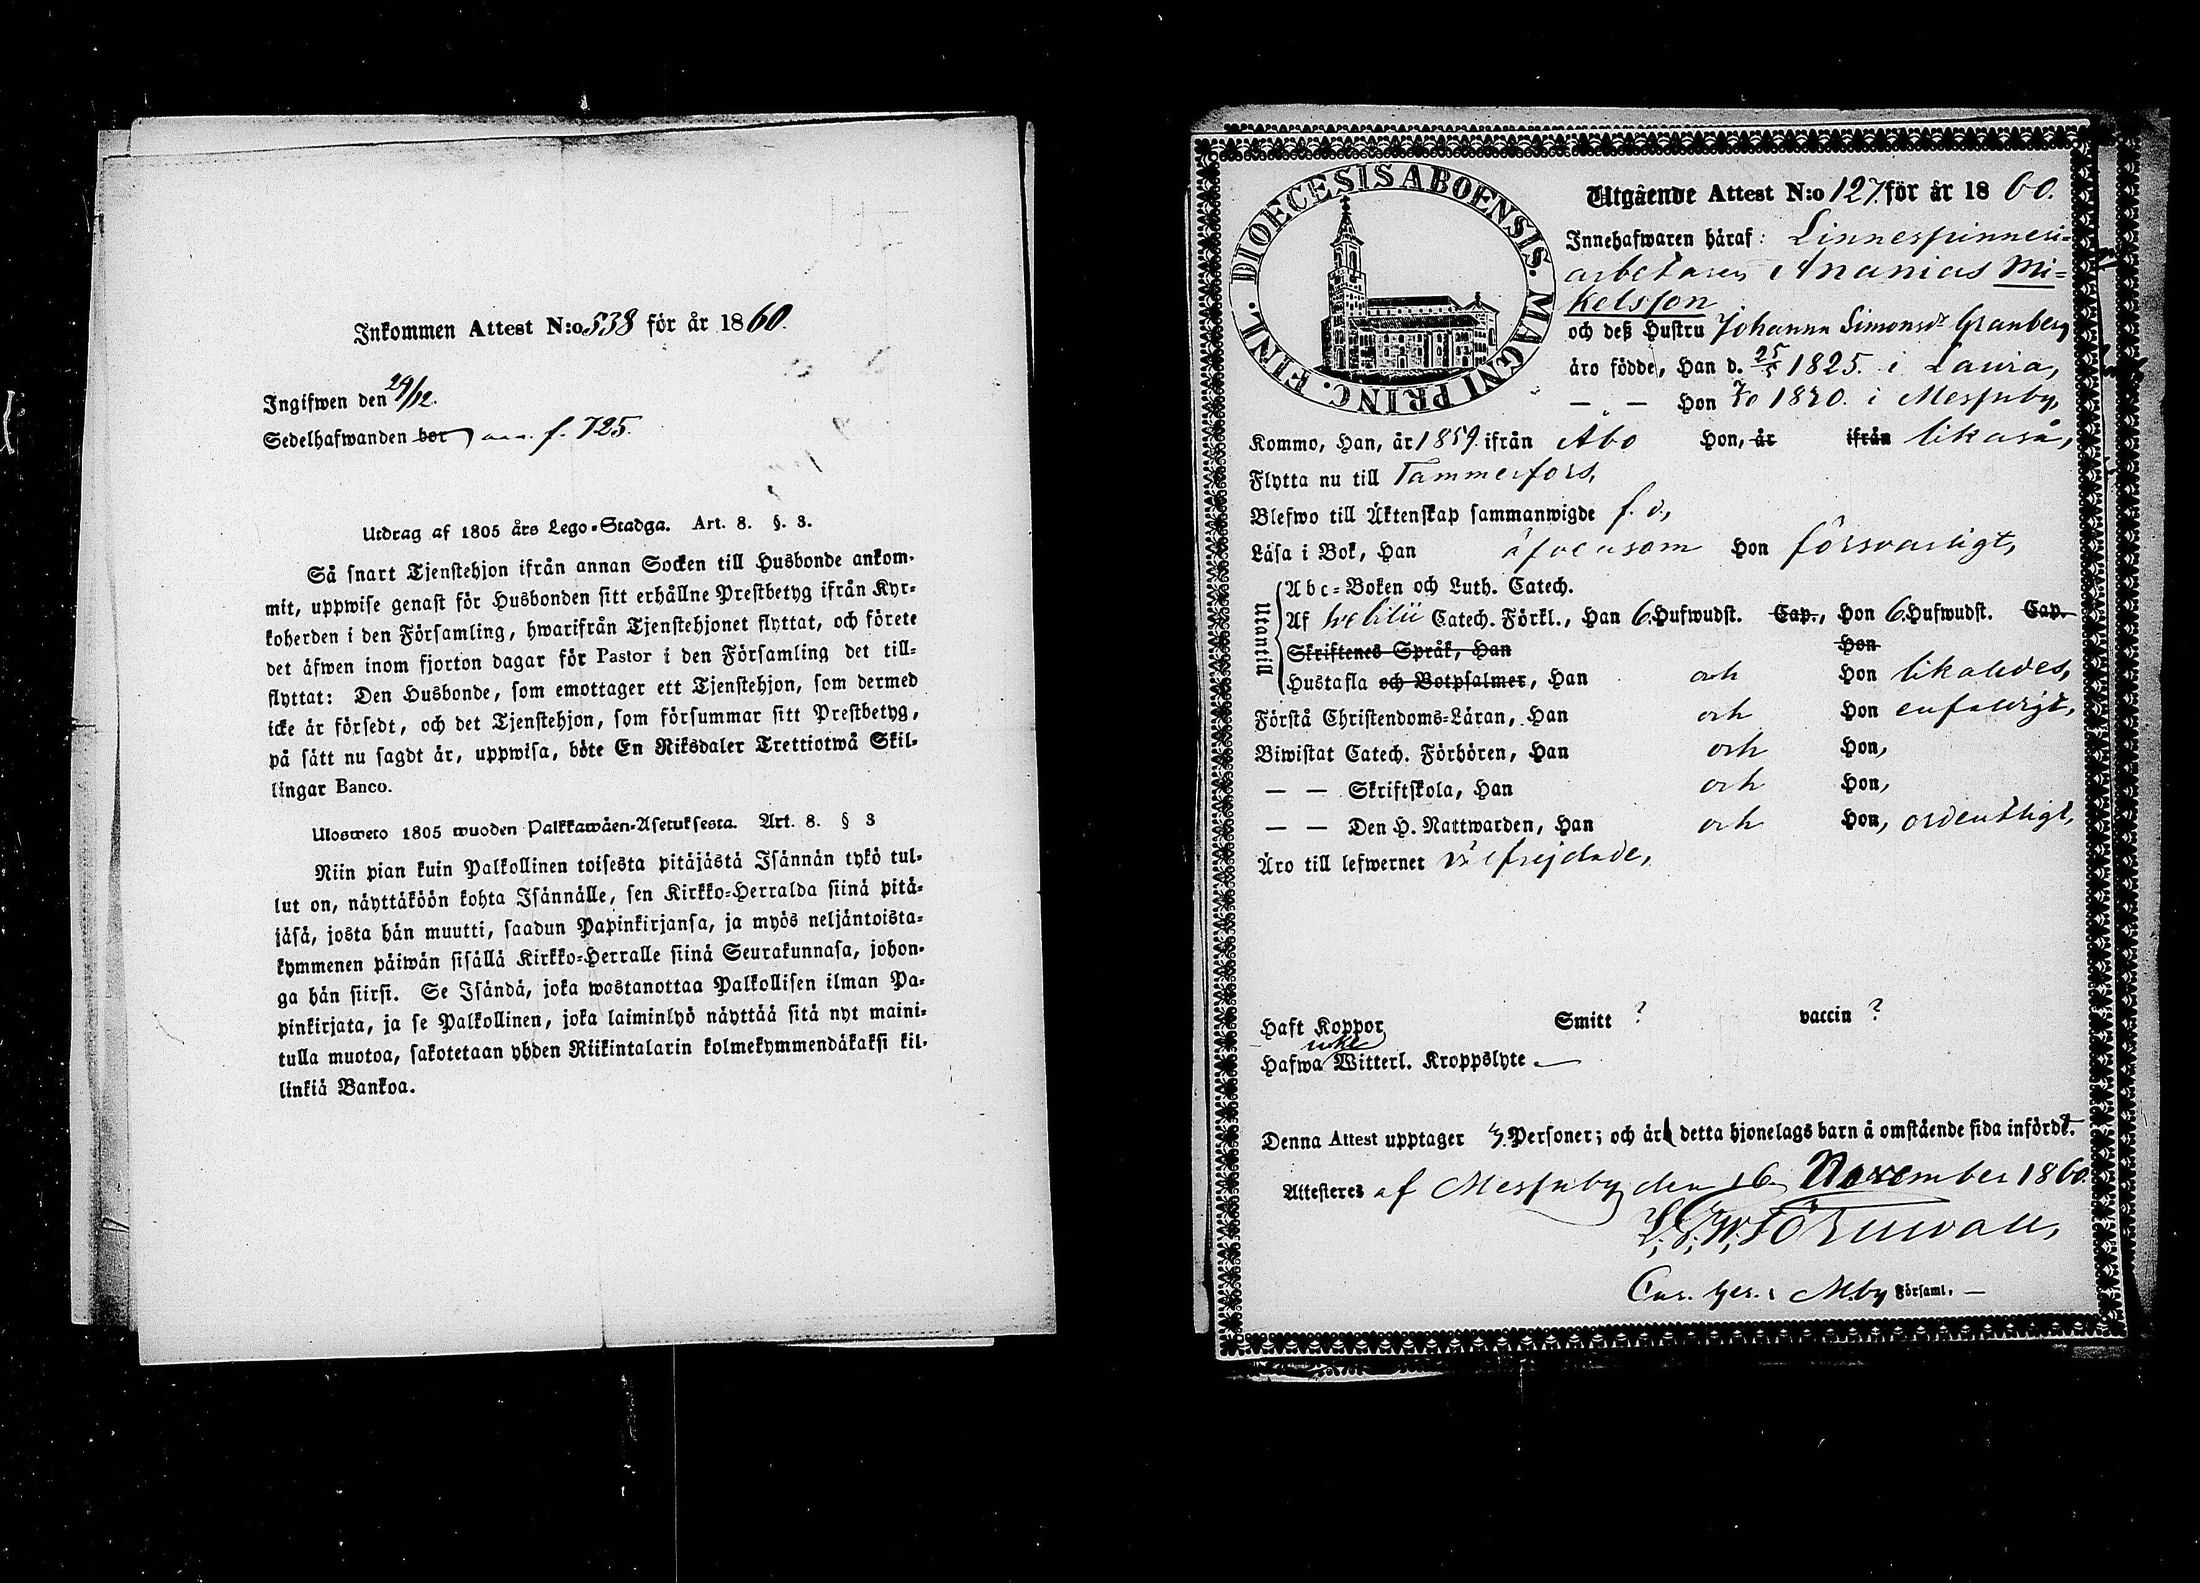 Inkommen Attest N:o 538 för år 1860.
Ingifwen den 24/12.
Sedelhafwanden bor f. 725.
Utdrag af 1805 års Lego-Stadga. Art. 8. §. 3.
Så snart Tjenstehjon ifrån annan Socken till Husbonde ankom-
mit, uppwise genast för Husbonden sitt erhållne Prestbetyg ifrån Kyr-
koherden i den Församling, hwarifrån Tjenstehjonet flyttat, och förete
det äfwen inom fjorton dagar för Pastor i den Församling det till-
flyttat: Den Husbonde, som emottager ett Tjenstehjon, som dermed
icke är försedt, och det Tjenstehjon, som försummar sitt Prestbetyg,
på sätt nu sagdt är, uppwisa, böte En Riksdaler Trettiotwå Skil-
lingar Banco.
Ulosweto 1805 wuoden Palkkawäen-Asetuksesta. Art. 8. § 3
Niin pian kuin Palkollinen toisesta pitäjästä Isännän tykö tul-
lut on, näyttäköön kohta Isännälle, sen Kirkko-Herralda siinä pitä-
jäsä, josta hän muutti, saadun Papinkirjansa, ja myös neljäntoista-
kymmenen päiwän sisällä Kirkko-Herralle siinä Seurakunnasa, johon-
ga hän siirsi. Se Isändä, joka wastanottaa Palkollisen ilman Pa-
pinkirjata, ja se Palkollinen, joka laiminlyö näyttää sitä nyt maini-
tulla muotoa, sakotetaan yhden Riikintalarin kolmekymmendäkaksi kil-
linkiä Bankoa.
DIOECESIS ABOENSIS. MAGNI PRINC. FINL.
Utgående Attest N:o 127. för år 1860.
Innehafwaren häraf: Linnespinneri-
arbetaren Ananias Mi-
kelsson
och deß Hustru Johanna Simonsdr Granberg
äro födde, Han d. 25/5 1825. i Lauia,
— — Hon 1820. i Messuby,
Kommo, Han, år 1859. ifrån Åbo Hon, år ifrån likaså,
Flytta nu till Tammerfors,
Blefwo till Äktenskap sammanwigde f. d.,
Läsa i Bok, Han äfvensom Hon försvarligt,
Utantill
Abc-Boken och Luth. Catech.
Af Catech. Förkl., Han 6. Hufwudst. Cap., Hon 6. Hufwudst. Cap.
Skriftenes Språk, Han Hon
Hustafla och Botpsalmer, Han och Hon likaledes,
Förstå Christendoms-Läran, Han och Hon enfaldigt,
Biwistat Catech. Förhören, Han och Hon,
— — Skriftskola, Han och Hon,
— — Den H. Nattwarden, Han och Hon, ordentligt,
Äro till lefwernet välfrejdade,
Haft Koppor Smitt ? vaccin ?
icke
Hafwa Witterl. Kroppslyte —
Denna Attest upptager 3. Personer; och är detta hjonelags barn å omstående sida infördt.
Attesteres af Messuby den 16 November 1860.
Cur. ger. i M.by Församl. —